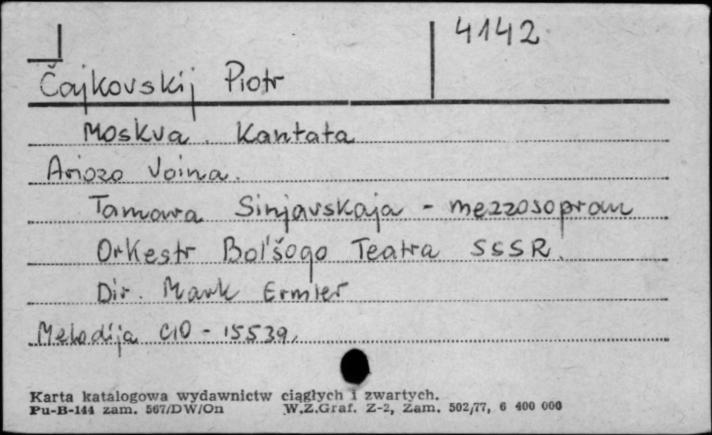 4142
Čajkovskij Piotr
Moskva. Kantata
Ariozo Voina.
Tamara Sinjavskaja - mezzosopran
Orkestr Bol'šogo Teatra SSSR.
Dir. Mark Ermler
Melodija C10 - 15539,
Karta katalogowa wydawnictw ciągłych i zwartych.
Pu-B-144 zam. 567/DW/On W.Z.Graf. Z-2, Zam. 502/77, 6 400 000